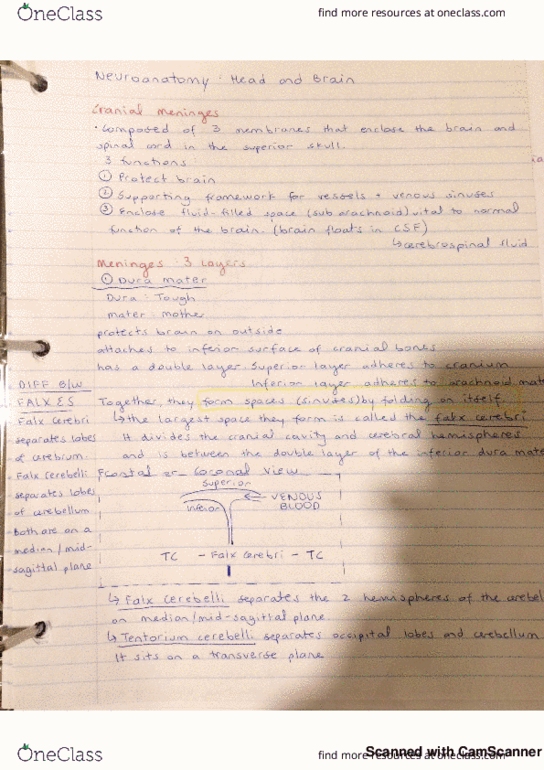 OneClass
find more resources at oneclass.com
Neuroanatomy : Head and Brain
Cranial meninges
• Composed of 3 membranes that enclose the brain and
spinal cord in the superior skull.
3 functions
① Protect brain
② Supporting framework for vessels + venous sinuses
③ Enclose fluid-filled space (subarachnoid) vital to normal
function of the brain. (brain floats in CSF)
↳ cerebrospinal fluid
Meninges : 3 Layers
① Dura mater
Dura : Tough
mater : mother
protects brain on outside
attaches to inferior surface of cranial bones
has a double layer. Superior layer adheres to cranium
Inferior layer adheres to arachnoid mate
Together, they form spaces (sinuses) by folding on itself.
↳ the largest space they form is called the falx cerebri
It divides the cranial cavity and cerebral hemispheres
and is between the double layer of the inferior dura mate
DIFF B/W
FALX ES
Falx cerebri
separates lobes
of cerebrum.
- Falx cerebelli
separates lobes
of cerebellum
- Both are on a
median/mid-
sagittal plane
Frontal or Coronal view
Superior
Inferior
VENOUS
BLOOD
TC - Falx cerebri - TC
↳ Falx cerebelli separates the 2 hemispheres of the cerebel
on median/mid-sagittal plane.
↳ Tentorium cerebelli separates occipital lobes and cerebellum
It sits on a transverse plane
OneClass
find more resources at oneclass.com
Scanned with CamScanner